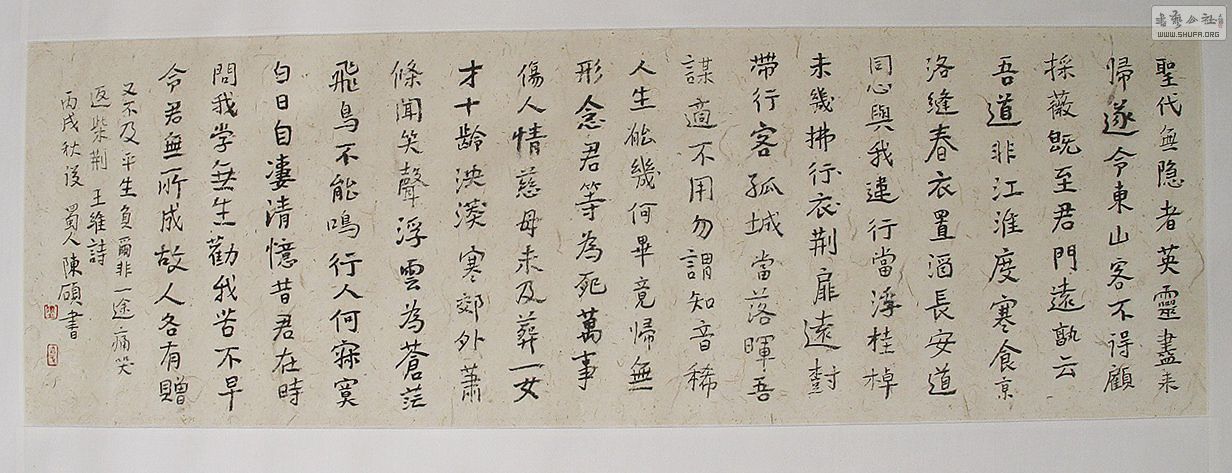 聖代無隐者英靈盡来
歸遂令東山客不得顧
採薇既至君門遠孰云
吾道非江淮度寒食京
洛縫春衣置酒長安道
同心與我違行當浮桂棹
未幾拂行衣荆扉遠樹
帶行客孤城當落暉吾
謀適不用勿謂知音稀
人生能幾何畢竟歸無
形念君等為死萬事
傷人情慈母未及葬一女
才十龄泱漭寒郊外蕭
條聞哭聲浮雲為蒼茫
飛鳥不能鳴行人何寂寞
白日自凄清憶昔君在時
問我学無生勸我苦不早
令君無所成故人各有贈
又不及平生負爾非一途痛哭
返柴荆 王維詩
丙戌秋後蜀人陳碩書
書藝公社
WWW.SHUFA.ORG